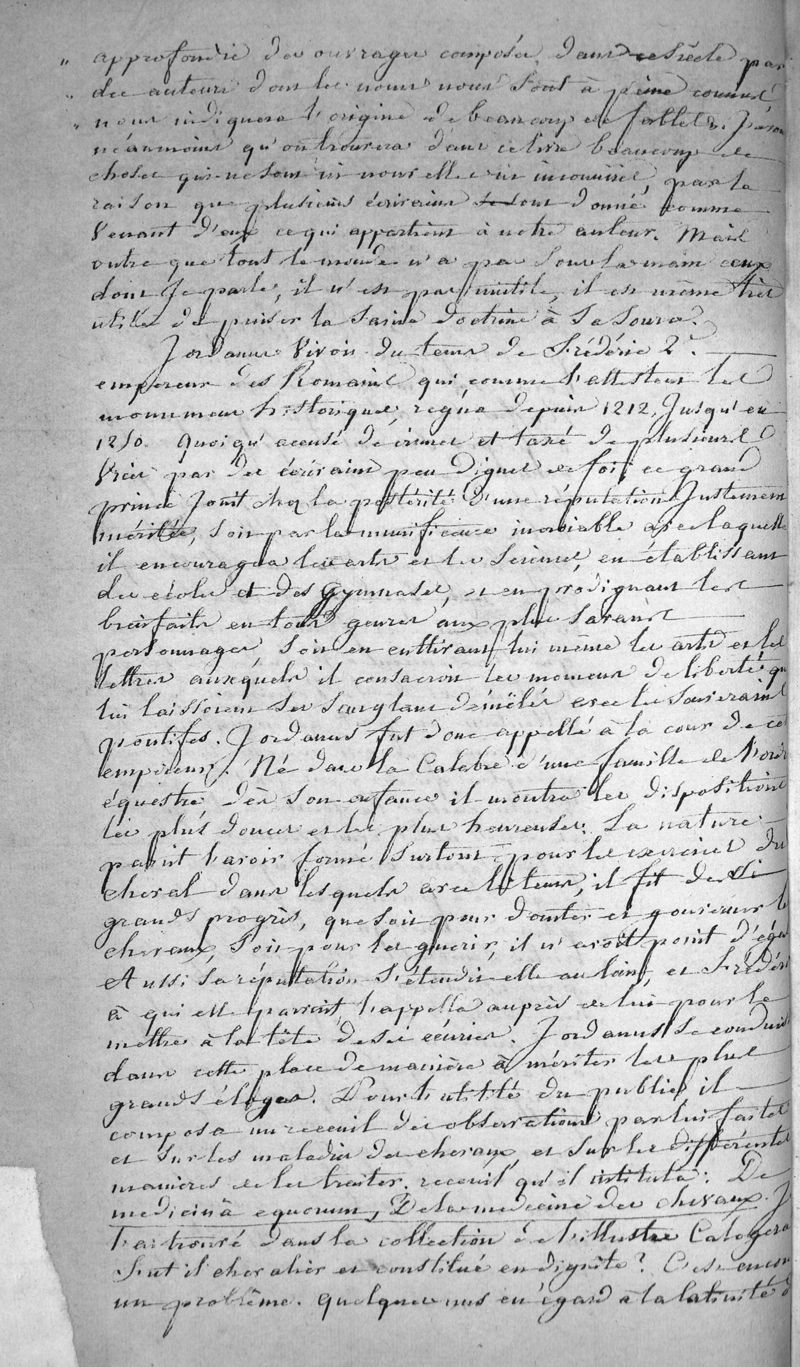 " approfondie des ouvrages composés dans ce siècle par
" des auteurs dont les noms nous sont à peine connus,
" nous indiquera l'origine de beaucoup de fables.
néanmoins qu'on trouvera dans ce livre beaucoup de
choses qui ne sont ni nouvelles ni inconnues, par la
raison que plusieurs écrivains se sont donné comme
venant d'eux ce qui appartient à notre auteur. Mais
outre que tout le monde n'a pas sous la main ceux
dont je parle, il n'est pas inutile, il est même très
utile de puiser la saine doctrine à sa source.
Jordanus vivoit du tems de Frédéric 2d.
empereur des Romains qui comme l'attestent les
monumens historiques, régna depuis 1212, jusqu'en
1250. quoiqu'accusé de crimes et taxé de plusieurs
vices par des écrivains peu dignes de foi, ce grand
prince jouit chez la postérité d'une réputation justement
méritée, soit par la munificence incroiable avec laquelle
il encouragea les arts et les sciences, en établissant
des écoles et des gymnases, et en prodiguant les
bienfaits en tous genres aux plus savans
personnages, soit en cultivant lui même les arts et les
lettres auxquels il consacroit les momens de liberté que
lui laissoient ses sanglans démêlés avec les souverains
pontifes. Jordanus fut donc appellé à la cour de cet
empereur. Né dans la Calabre d'une famille de l'ordre
équestre dès son enfance il montra les dispositions
les plus douces et les plus heureuses. La nature
parut l'avoir formé surtout pour les exercices du
cheval dans lesquels avec le tems, il fit de si
grands progrès, que soit pour domter et gouverner les
chevaux, soit pour les guérir, il n'avoit point d'égal
Aussi sa réputation s'étendit elle au loin, et Frédéric
à qui elle parvint, l'appella auprès de lui pour le
mettre à la tête de ses écuries. Jordanus se conduisit
dans cette place de manière à mériter les plus
grands éloges. Pour l'utilité du public il
composa un recueil des observations par lui faites
et sur les maladies des chevaux, et sur les différentes
manières de les traiter. receuil qu'il intitula: De
medicinâ equorum, De la medecine des chevaux. Je
l'ai trouvé dans la collection de l'illustre Calogera
Fut il chevalier et constitué en dignité? C'est encore
un problême. quelques uns eu égard à la latinité